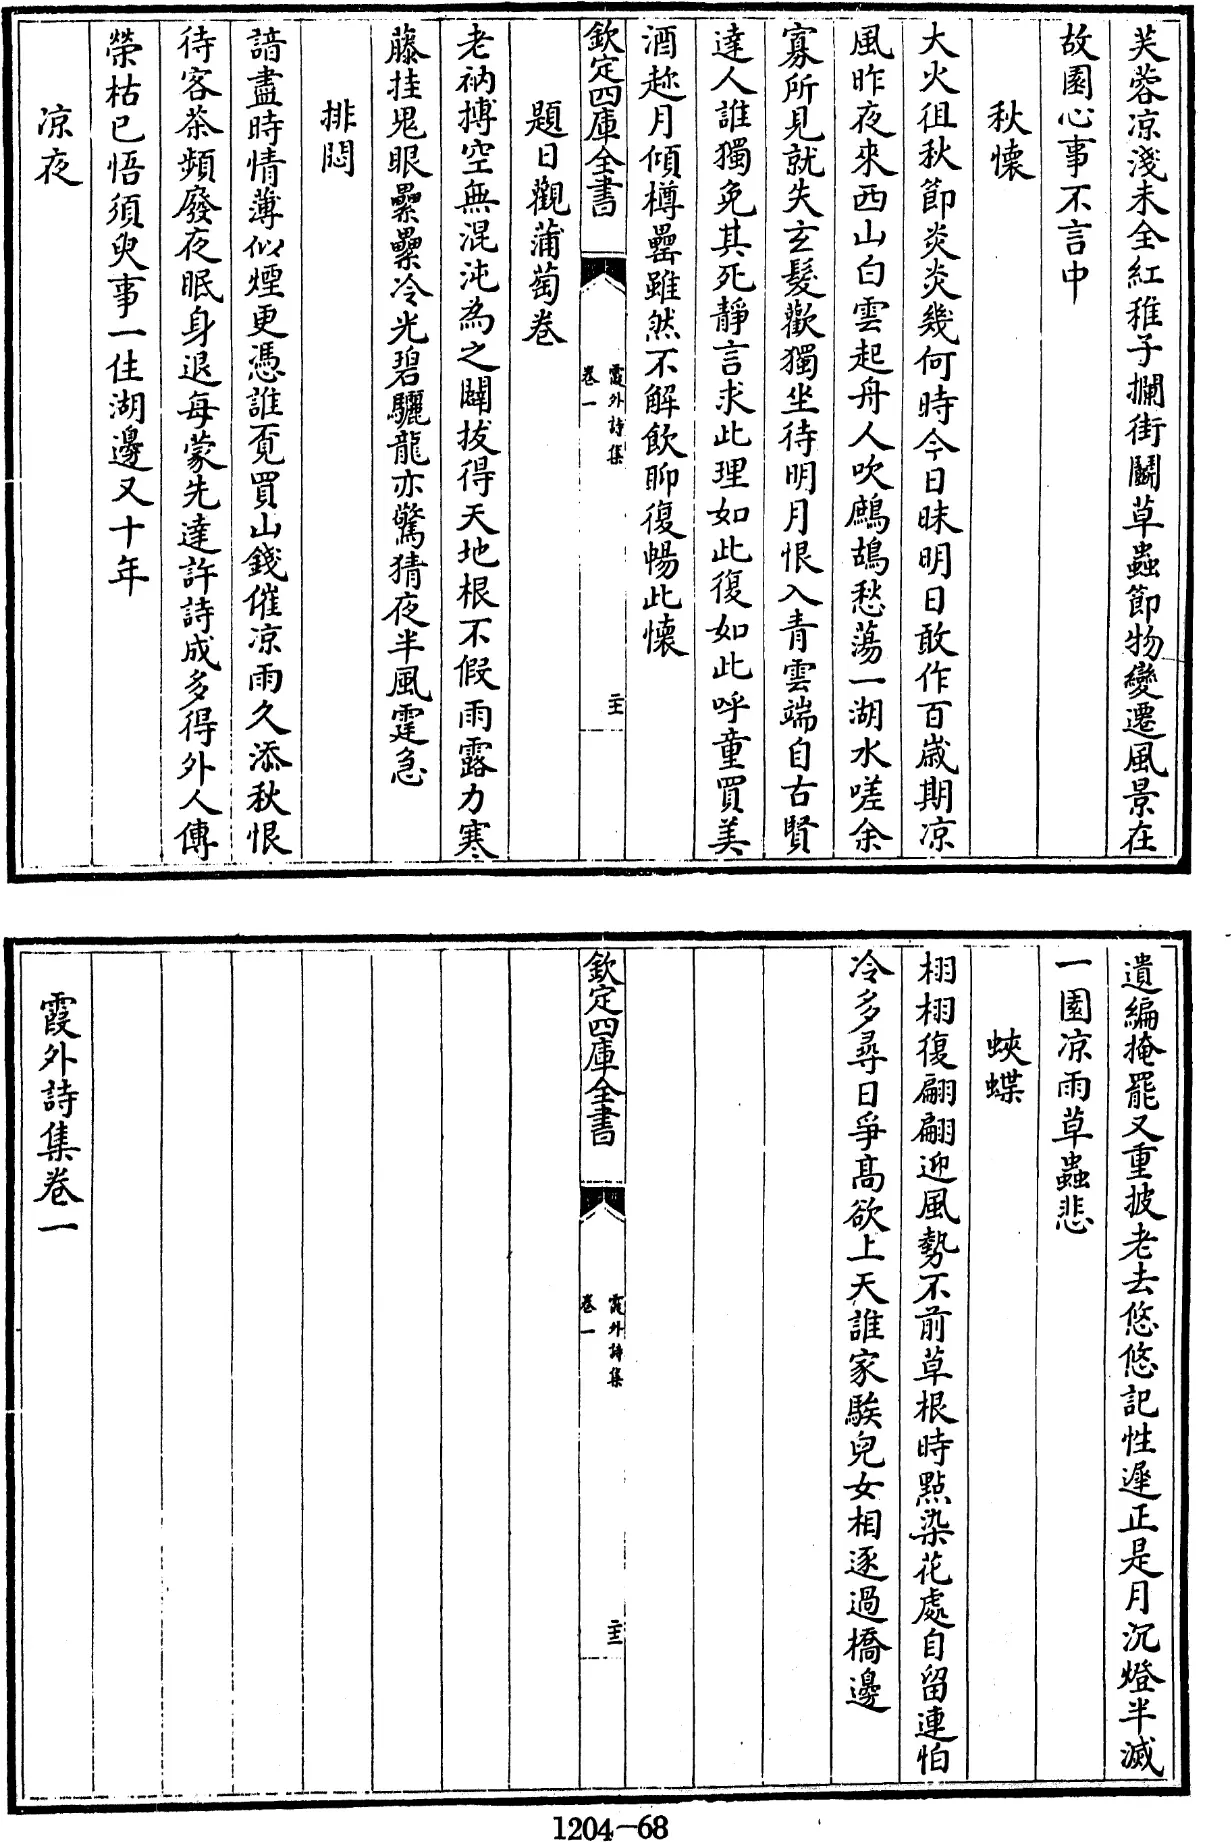 芙蓉凉淺未全紅稚子攔街鬭草蟲節物變遷風景在
故園心事不言中
秋懷
大火徂秋節炎炎幾何時今日昧明日敢作百歲期凉
風昨夜來西山白雲起舟人吹鷓鴣愁蕩一湖水嗟余
寡所見就失玄髮歡獨坐待明月恨入青雲端自古賢
達人誰獨免其死靜言求此理如此復如此呼童買美
酒趂月傾樽罍雖然不解飲聊復暢此懷
欽定四庫全書
霞外詩集
卷一
題日觀蒲萄卷
老衲摶空無混沌為之闢拔得天地根不假雨露力寒
藤挂鬼眼纍纍冷光碧驪龍亦驚猜夜半風霆急
排悶
諳盡時情薄似煙更憑誰覓買山錢催凉雨久添秋恨
待客茶頻廢夜眠身退每蒙先達許詩成多得外人傳
榮枯已悟須臾事一住湖邊又十年
凉夜
遺編掩罷又重披老去悠悠記性遲正是月沉燈半滅
一園凉雨草蟲悲
蛺蝶
栩栩復翩翩迎風勢不前草根時點染花處自留連怕
冷多尋日爭高欲上天誰家騃兒女相逐過橋邊
欽定四庫全書
霞外詩集
卷一
霞外詩集卷一
1204—68